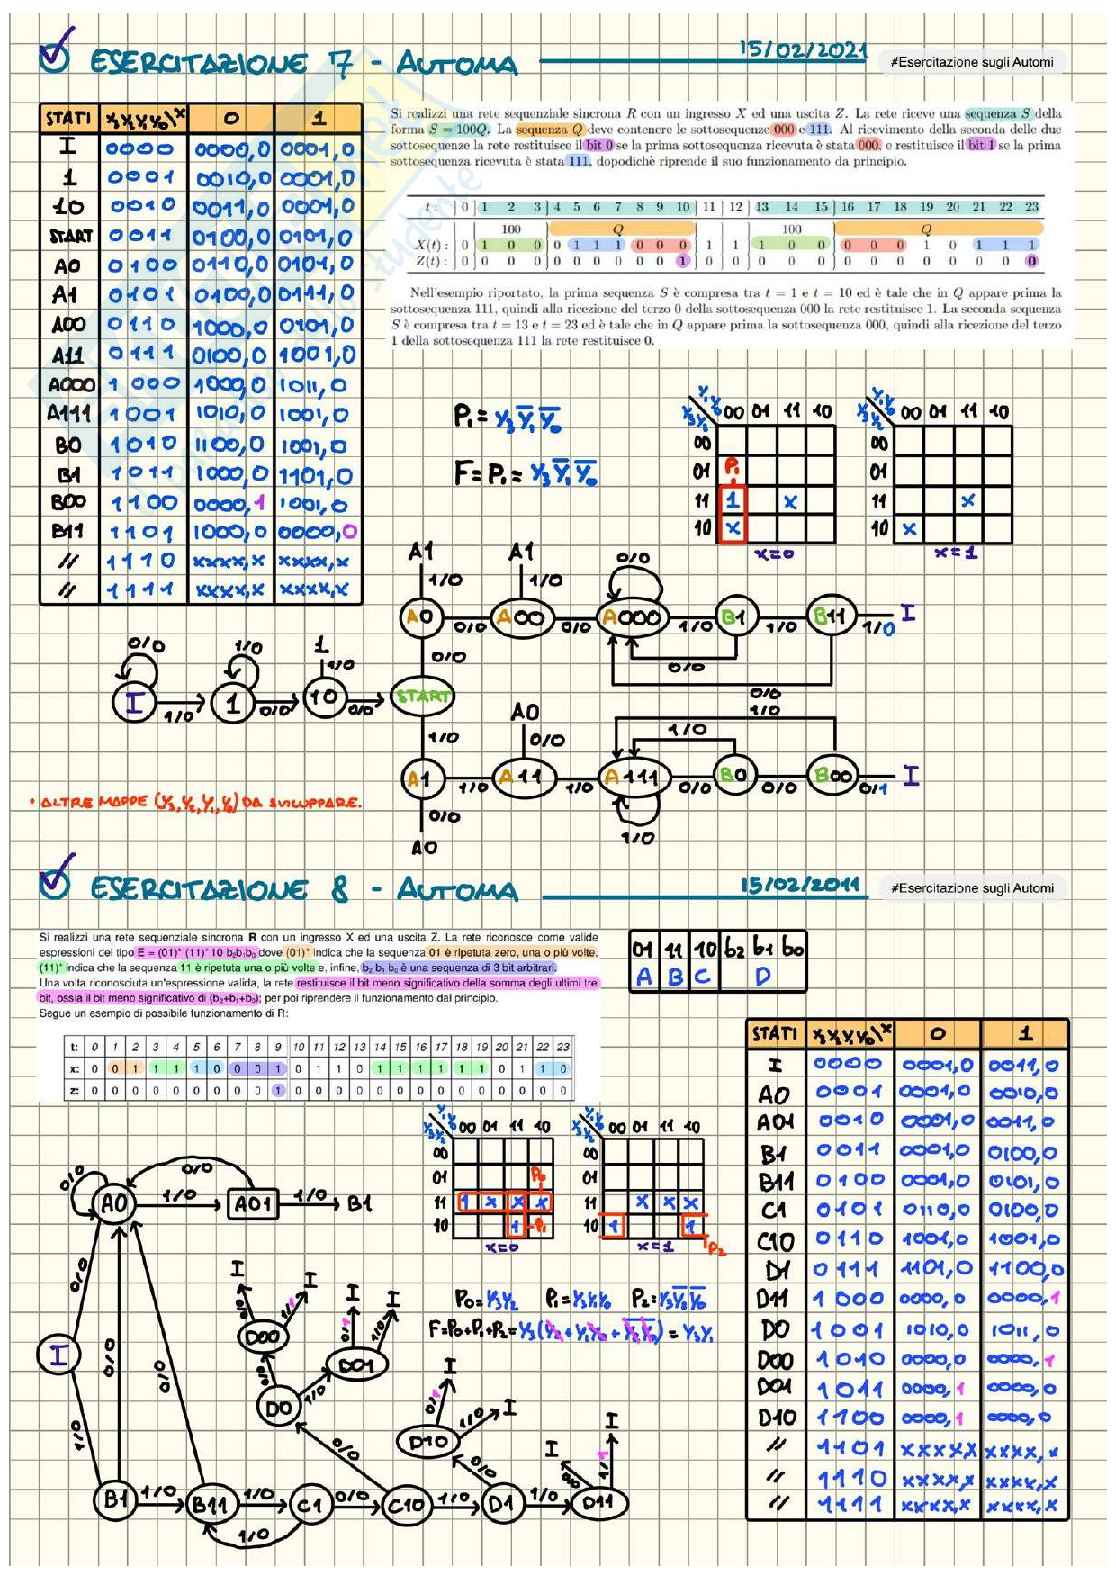 ESERCITAZIONE 7 - AUTOMA
15/02/2021
#Esercitazione sugli Automi
STATI y₃y₂y₁y₀\x 0 1
I 0000 0000,0 0001,0
1 0001 0010,0 0001,0
10 0010 0011,0 0001,0
START 0011 0100,0 0101,0
A0 0100 0110,0 0101,0
A1 0101 0100,0 0111,0
A00 0110 1000,0 0101,0
A11 0111 0100,0 1001,0
A000 1000 1000,0 1011,0
A111 1001 1010,0 1001,0
B0 1010 1100,0 1001,0
B1 1011 1000,0 1101,0
B00 1100 0000,1 1001,0
B11 1101 1000,0 0000,0
// 1110 xxxx,x xxxx,x
// 1111 xxxx,x xxxx,x
Si realizzi una rete sequenziale sincrona R con un ingresso X ed una uscita Z. La rete riceve una sequenza S della
forma S = 100Q. La sequenza Q deve contenere le sottosequenze 000 e 111. Al ricevimento della seconda delle due
sottosequenze la rete restituisce il bit 0 se la prima sottosequenza ricevuta è stata 000, e restituisce il bit 1 se la prima
sottosequenza ricevuta è stata 111, dopodiché riprende il suo funzionamento da principio.
t : 0 1 2 3 4 5 6 7 8 9 10 11 12 13 14 15 16 17 18 19 20 21 22 23
100 Q 100 Q
X(t) : 0 1 0 0 0 1 1 1 0 0 0 1 1 1 0 0 0 0 0 1 0 1 1 1
Z(t) : 0 0 0 0 0 0 0 0 0 0 1 0 0 0 0 0 0 0 0 0 0 0 0 0
Nell'esempio riportato, la prima sequenza S è compresa tra t = 1 e t = 10 ed è tale che in Q appare prima la
sottosequenza 111, quindi alla ricezione del terzo 0 della sottosequenza 000 la rete restituisce 1. La seconda sequenza
S è compresa tra t = 13 e t = 23 ed è tale che in Q appare prima la sottosequenza 000, quindi alla ricezione del terzo
1 della sottosequenza 111 la rete restituisce 0.
P₁ = y₃ y̅₁ y̅₀
F = P₁ = y₃ y̅₁ y̅₀
y₁y₀ y₃y₂ 00 01 11 10
00
01 P₁
11 1 x
10 x
x=0
y₁y₀ y₃y₂ 00 01 11 10
00
01
11 x
10 x
x=1
A1 A1 0/0
1/0 1/0
A0 0/0 A00 0/0 A000 1/0 B1 1/0 B11 1/0 I
0/0 0/0
0/0
0/0 1/0 1
1/0
I 1/0 1 0/0 10 0/0 START
1/0
A0 1/0
1/0 0/0
A1 1/0 A11 1/0 A111 0/0 B0 0/0 B00 0/1 I
0/0 1/0
A0
• ALTRE MAPPE (y₃,y₂,y₁,y₀) DA SVILUPPARE.
ESERCITAZIONE 8 - AUTOMA
15/02/2011
#Esercitazione sugli Automi
Si realizzi una rete sequenziale sincrona R con un ingresso X ed una uscita Z. La rete riconosce come valide
espressioni del tipo E = (01)* (11)⁺ 10 b₂b₁b₀ dove (01)* indica che la sequenza 01 è ripetuta zero, una o più volte,
(11)⁺ indica che la sequenza 11 è ripetuta una o più volte e, infine, b₂ b₁ b₀ è una sequenza di 3 bit arbitrari.
Una volta riconosciuta un'espressione valida, la rete restituisce il bit meno significativo della somma degli ultimi tre
bit, ossia il bit meno significativo di (b₂+b₁+b₀); per poi riprendere il funzionamento dal principio.
Segue un esempio di possibile funzionamento di R:
t: 0 1 2 3 4 5 6 7 8 9 10 11 12 13 14 15 16 17 18 19 20 21 22 23
x: 0 0 1 1 1 1 0 0 0 1 0 1 1 0 1 1 1 1 1 1 0 1 1 0
z: 0 0 0 0 0 0 0 0 0 1 0 0 0 0 0 0 0 0 0 0 0 0 0 0
01 11 10 b₂ b₁ b₀
A B C D
STATI y₃y₂y₁y₀\x 0 1
I 0000 0001,0 0011,0
A0 0001 0001,0 0010,0
A01 0010 0001,0 0011,0
B1 0011 0001,0 0100,0
B11 0100 0001,0 0101,0
C1 0101 0110,0 0100,0
C10 0110 1001,0 1001,0
D1 0111 1101,0 1100,0
D11 1000 0000,0 0000,1
D0 1001 1010,0 1011,0
D00 1010 0000,0 0000,1
D01 1011 0000,1 0000,0
D10 1100 0000,1 0000,0
// 1101 xxxxx xxxx,x
// 1110 xxxx,x xxxx,x
// 1111 xxxx,x xxxx,x
y₁y₀ y₃y₂ 00 01 11 10
00
01 P₀
11 1 x x x
10 1 P₁
x=0
y₁y₀ y₃y₂ 00 01 11 10
00
01
11 x x x
10 1 1
x=1 P₂
P₀=y₃y₂ P₁=y₃y₁y₀ P₂=y₃y̅₂y̅₀
F=P₀+P₁+P₂=y₃(y₂+y₁y₀+y̅₂y̅₀) = y₃y₁
0/0 0/0
A0 1/0 A01 1/0 B1
0/0 0/0 0/0
I I I I
0/0 1/1 0/1 1/0
D00 D01
I
1/0
0/0 1/0
D0
I I
0/1 1/0
D10
0/0 0/0
I I
0/0 1/1
B1 1/0 B11 1/0 C1 0/0 C10 1/0 D1 1/0 D11
1/0